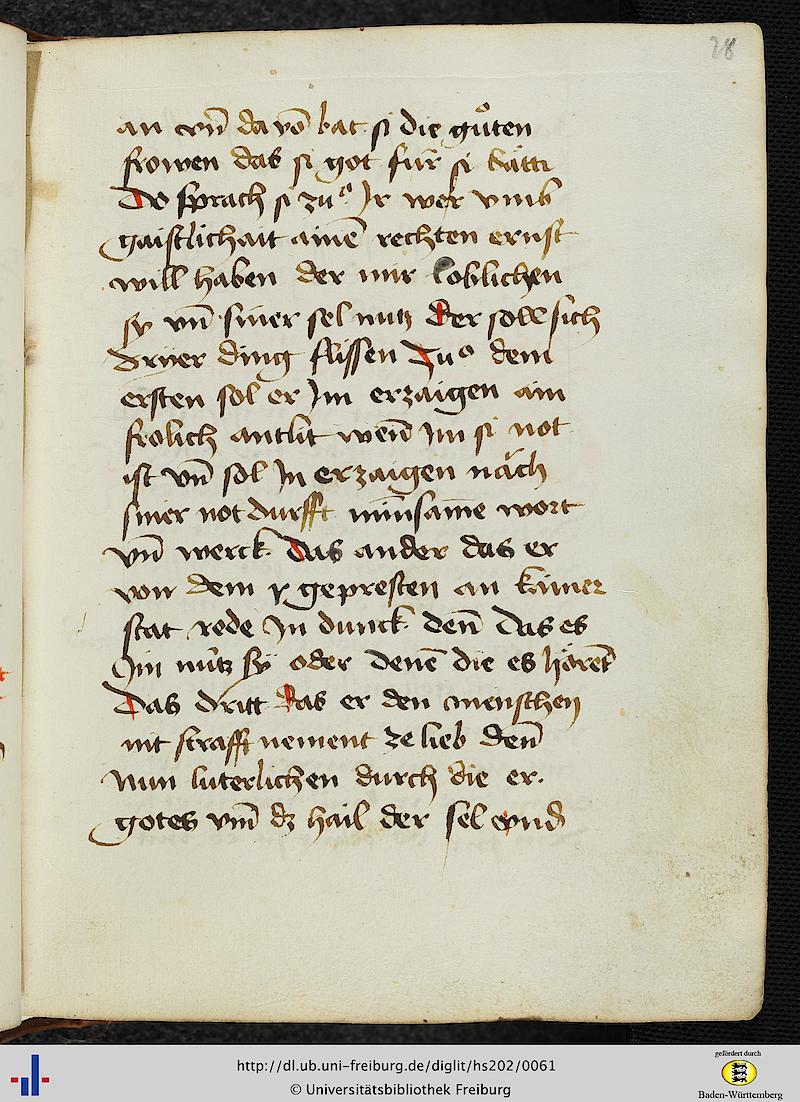 28
an vn̄ da vō bat si die gůten
frowen das si got für si bätti
Do sprach si zuͦ Ir wer vmb
gaistlichait ainē rechten ernst
will haben der mir loblichen
sy vn̄ siner sel nutz der soll sich
dryer ding flissen Zuͦ dem
ersten sol er Im erzaigen ain
frolich antlit wen̄ Im si not
ist vn̄ sol In erzaigen näch
siner notdurfft minsame wort
vn̄ werck Das ander das er
von dem gepresten an kainer
stat rede In dunck den̄ Das es
Im nütz sy oder denē die es hörent
Das dritt das er den menschen
nit straff nement ze lieb den̄
Nun luterlichen durch die er
gotes vm̄ dz hail der sel vnd
http://dl.ub.uni-freiburg.de/diglit/hs202/0061
© Universitätsbibliothek Freiburg
gefördert durch
Baden-Württemberg